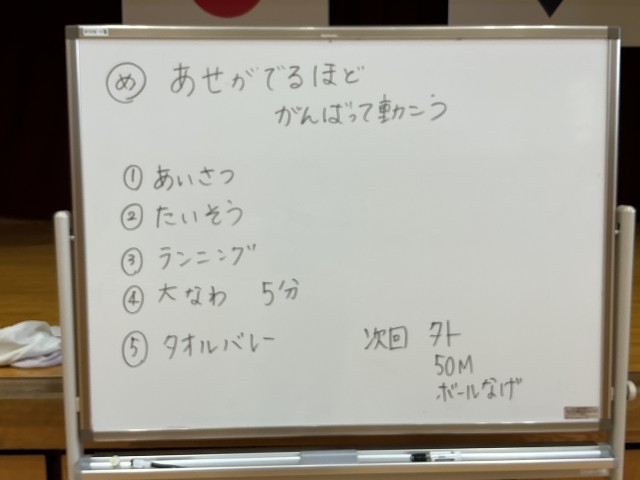 め あせがでるほど
がんばって動こう
① あいさつ
② たいそう
③ ランニング
④ 大なわ 5分
⑤ タオルバレー
次回 外
50M
ボールなげ